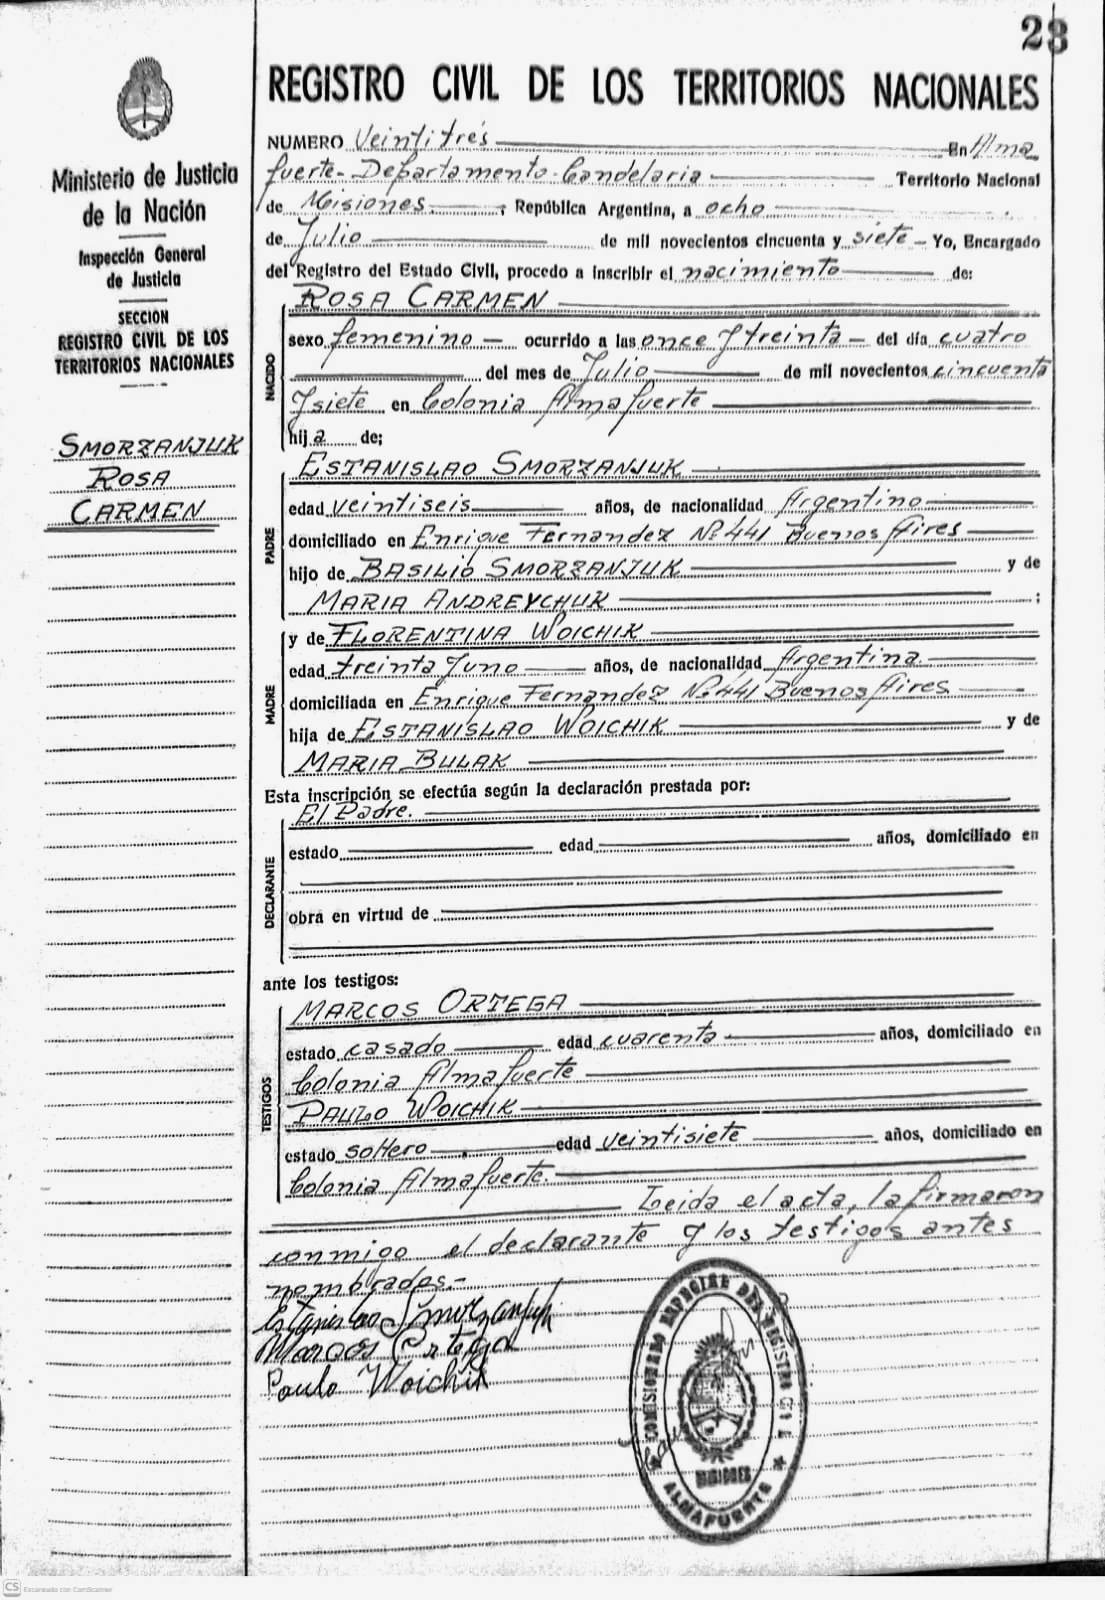 23
REGISTRO CIVIL DE LOS TERRITORIOS NACIONALES
Ministerio de Justicia
de la Nación
Inspección General
de Justicia
SECCION
REGISTRO CIVIL DE LOS
TERRITORIOS NACIONALES
SMORZANJUK
ROSA
CARMEN
NUMERO Veintitrés En Alma
fuerte - Departamento - Candelaria Territorio Nacional
de Misiones. , República Argentina, a ocho
de Julio de mil novecientos cincuenta y siete - Yo, Encargado
del Registro del Estado Civil, procedo a inscribir el nacimiento de:
NACIDO
ROSA CARMEN
sexo femenino - ocurrido a las once y treinta - del día cuatro
del mes de Julio de mil novecientos cincuenta
y siete en Colonia Almafuerte
hija de;
PADRE
ESTANISLAO SMORZANJUK
edad veintiseis años, de nacionalidad Argentino
domiciliado en Enrique Fernandez Nº 441 Buenos Aires
hijo de BASILIO SMORZANJUK y de
MARIA ANDREYCHUK ;
MADRE
y de FLORENTINA WOICHIK
edad treinta y uno años, de nacionalidad Argentina.
domiciliada en Enrique Fernandez Nº 441 Buenos Aires
hija de ESTANISLAO WOICHIK y de
MARIA BULAK
Esta inscripción se efectúa según la declaración prestada por:
DECLARANTE
El Padre.
estado edad años, domiciliado en
obra en virtud de
ante los testigos:
TESTIGOS
MARCOS ORTEGA
estado casado edad cuarenta años, domiciliado en
Colonia Almafuerte
PAULO WOICHIK
estado soltero edad veintisiete años, domiciliado en
Colonia Almafuerte.
Leida el acta, la firmaron
conmigo el declarante y los testigos antes
nombrados.-
Estanislao Smorzanjuk
Marcos Ortega
Paulo Woichik
DEL REGISTRO CIVIL
MISIONES
ALMAFUERTE
CS Escaneado con CamScanner